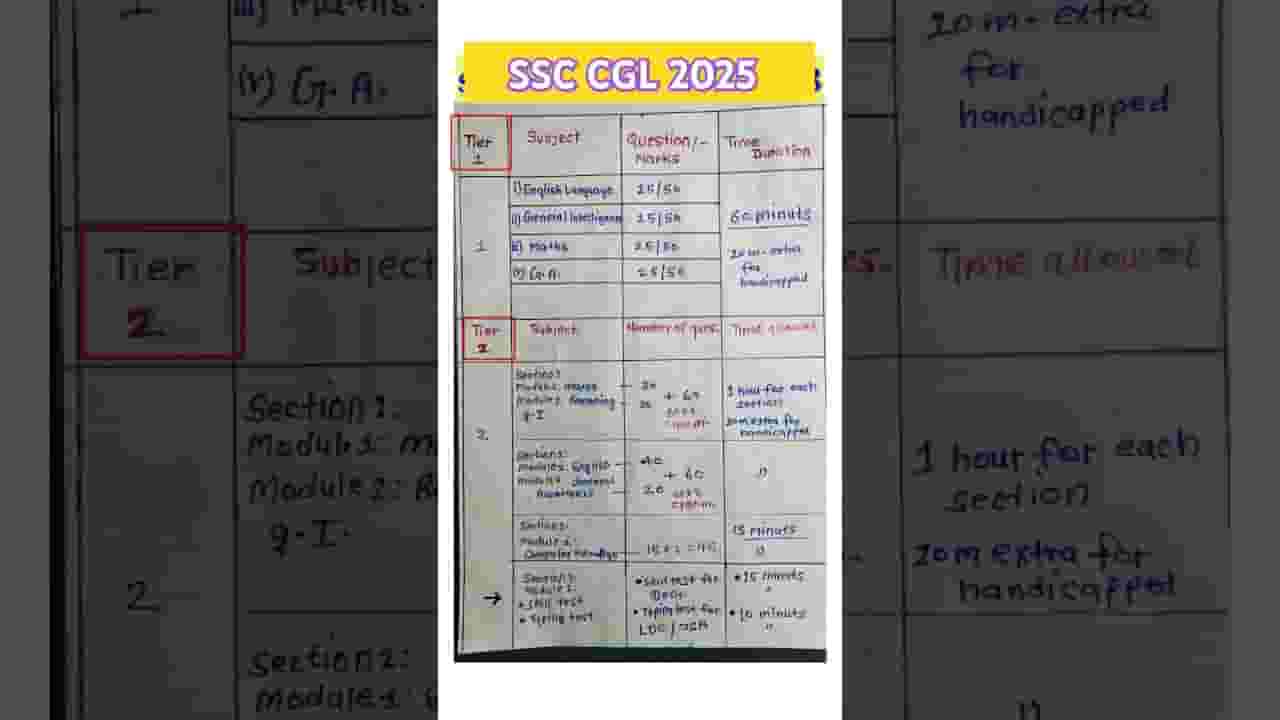 SSC CGL 2025
Tier 1
Subject
Question/- Marks
Time Duration
i) English Language
25/50
ii) General Intelligence
25/50
60 minuts
1
iii) Maths
25/50
20 m- extra for handicapped
iv) G.A.
25/50
Tier 2
Subject
Number of ques.
Time allowed
Section 1:
Module 1: maths
30
Module 2: Reasoning
30
g.I
+ 60
1 hour for each section
20 m extra for handicapped
2
Section 2:
Module 1: English
40
Module 2: General Awareness
20
+ 60
"
Section 3:
Module 1:
Computer
15 minuts
"
→
Section 3:
Module 2:
• Skill test
• Typing test
• Skill test for
• Typing test for
LDC /
• 15 minuts
"
• 10 minuts
"
iii) Maths.
1
(v) G.A.
Tier 2
Subject
Section 1.
Module 1: m
Module 2: R
g.I.
2
Section 2:
Module 1:
20 m- extra
for
handicapped
es.
Time allowed
1 hour for each
section
20 m extra for
handicapped
"